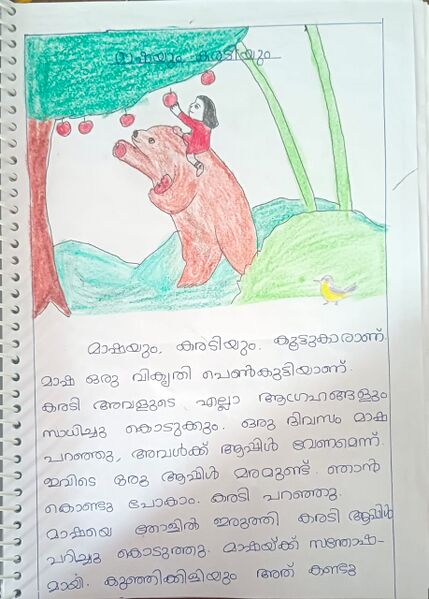 മാഷയും കരടിയും
മാഷയും, കരടിയും. കൂട്ടുകാരാണ്.
മാഷ ഒരു വികൃതി പെൺകുട്ടിയാണ്.
കരടി അവളുടെ എല്ലാ ആഗ്രഹങ്ങളും
സാധിച്ചു കൊടുക്കും. ഒരു ദിവസം മാഷ
പറഞ്ഞു, അവൾക്ക് ആപ്പിൾ വേണമെന്ന്.
ഇവിടെ ഒരു ആപ്പിൾ മരമുണ്ട്. ഞാൻ
കൊണ്ടു പോകാം. കരടി പറഞ്ഞു.
മാഷയെ തോളിൽ ഇരുത്തി കരടി ആപ്പിൾ
പറിച്ചു കൊടുത്തു. മാഷയ്ക്ക് സന്തോഷ-
മായി. കുഞ്ഞിക്കിളിയും അത് കണ്ടു